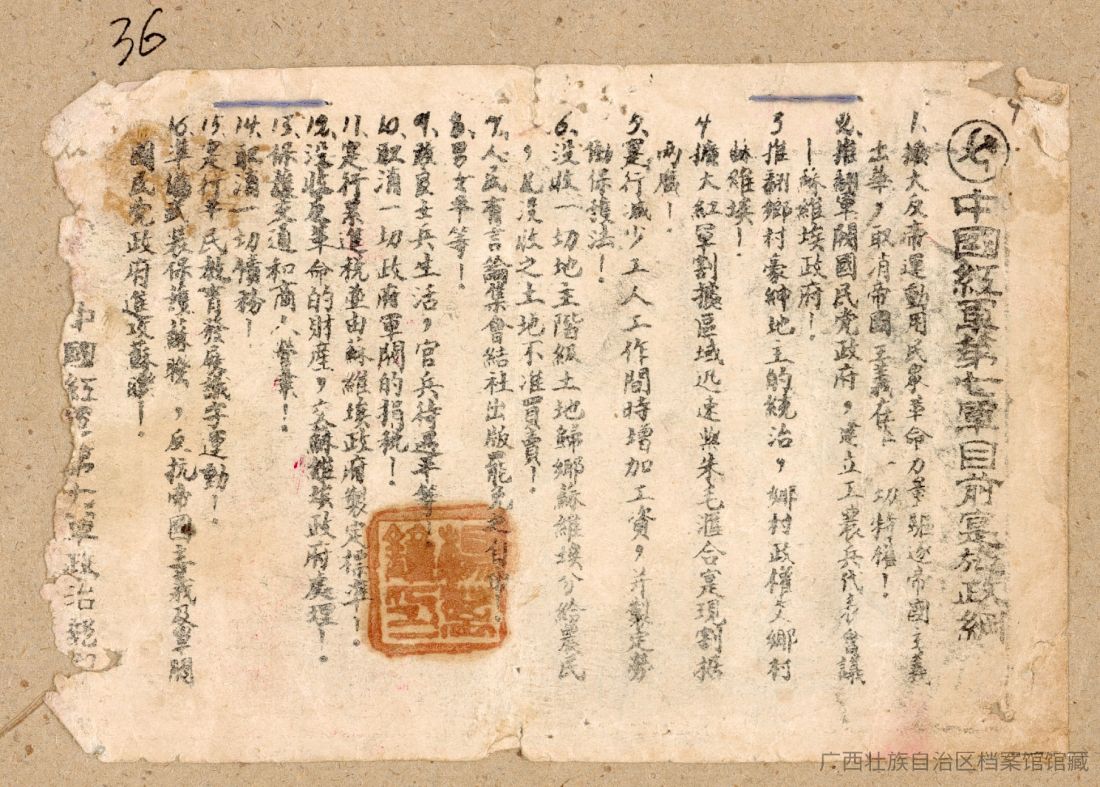 36
中國紅軍第七軍目前實施政綱
1、擴大反帝運動用民衆革命力量驅逐帝國主義
出華，取消帝國主義在華一切特權！
2、推翻軍閥國民党政府，建立工農兵代表會議
—蘇維埃政府！
3、推翻鄉村豪紳地主的統治，鄉村政權歸鄉村
蘇維埃！
4、擴大紅軍割據區域迅速與朱毛滙合寔現割據
両廣！
5、寔行减少工人工作間時增加工資，并製定勞
働保護法！
6、没收一切地主階級土地歸鄉蘇維埃分給農民
，凡没收之土地不准買賣！
7、人民有言論集會結社出版罷免之自由。
8、男女平等！
9、改良士兵生活，官兵待遇平等！
10、取消一切政府軍閥的捐税！
11、寔行累進税並由蘇維埃政府製定標準！
12、没收反革命的財産，交蘇維埃政府處理！
13、保護交通和商人營業！
14、取消一切債務！
15、寔行平民教育發展識字運動！
16、準備武装保護蘇聯，反抗帝國主義及軍閥
國民党政府進攻蘇聯！
中國紅軍第七軍政治部
广西壮族自治区档案馆馆藏